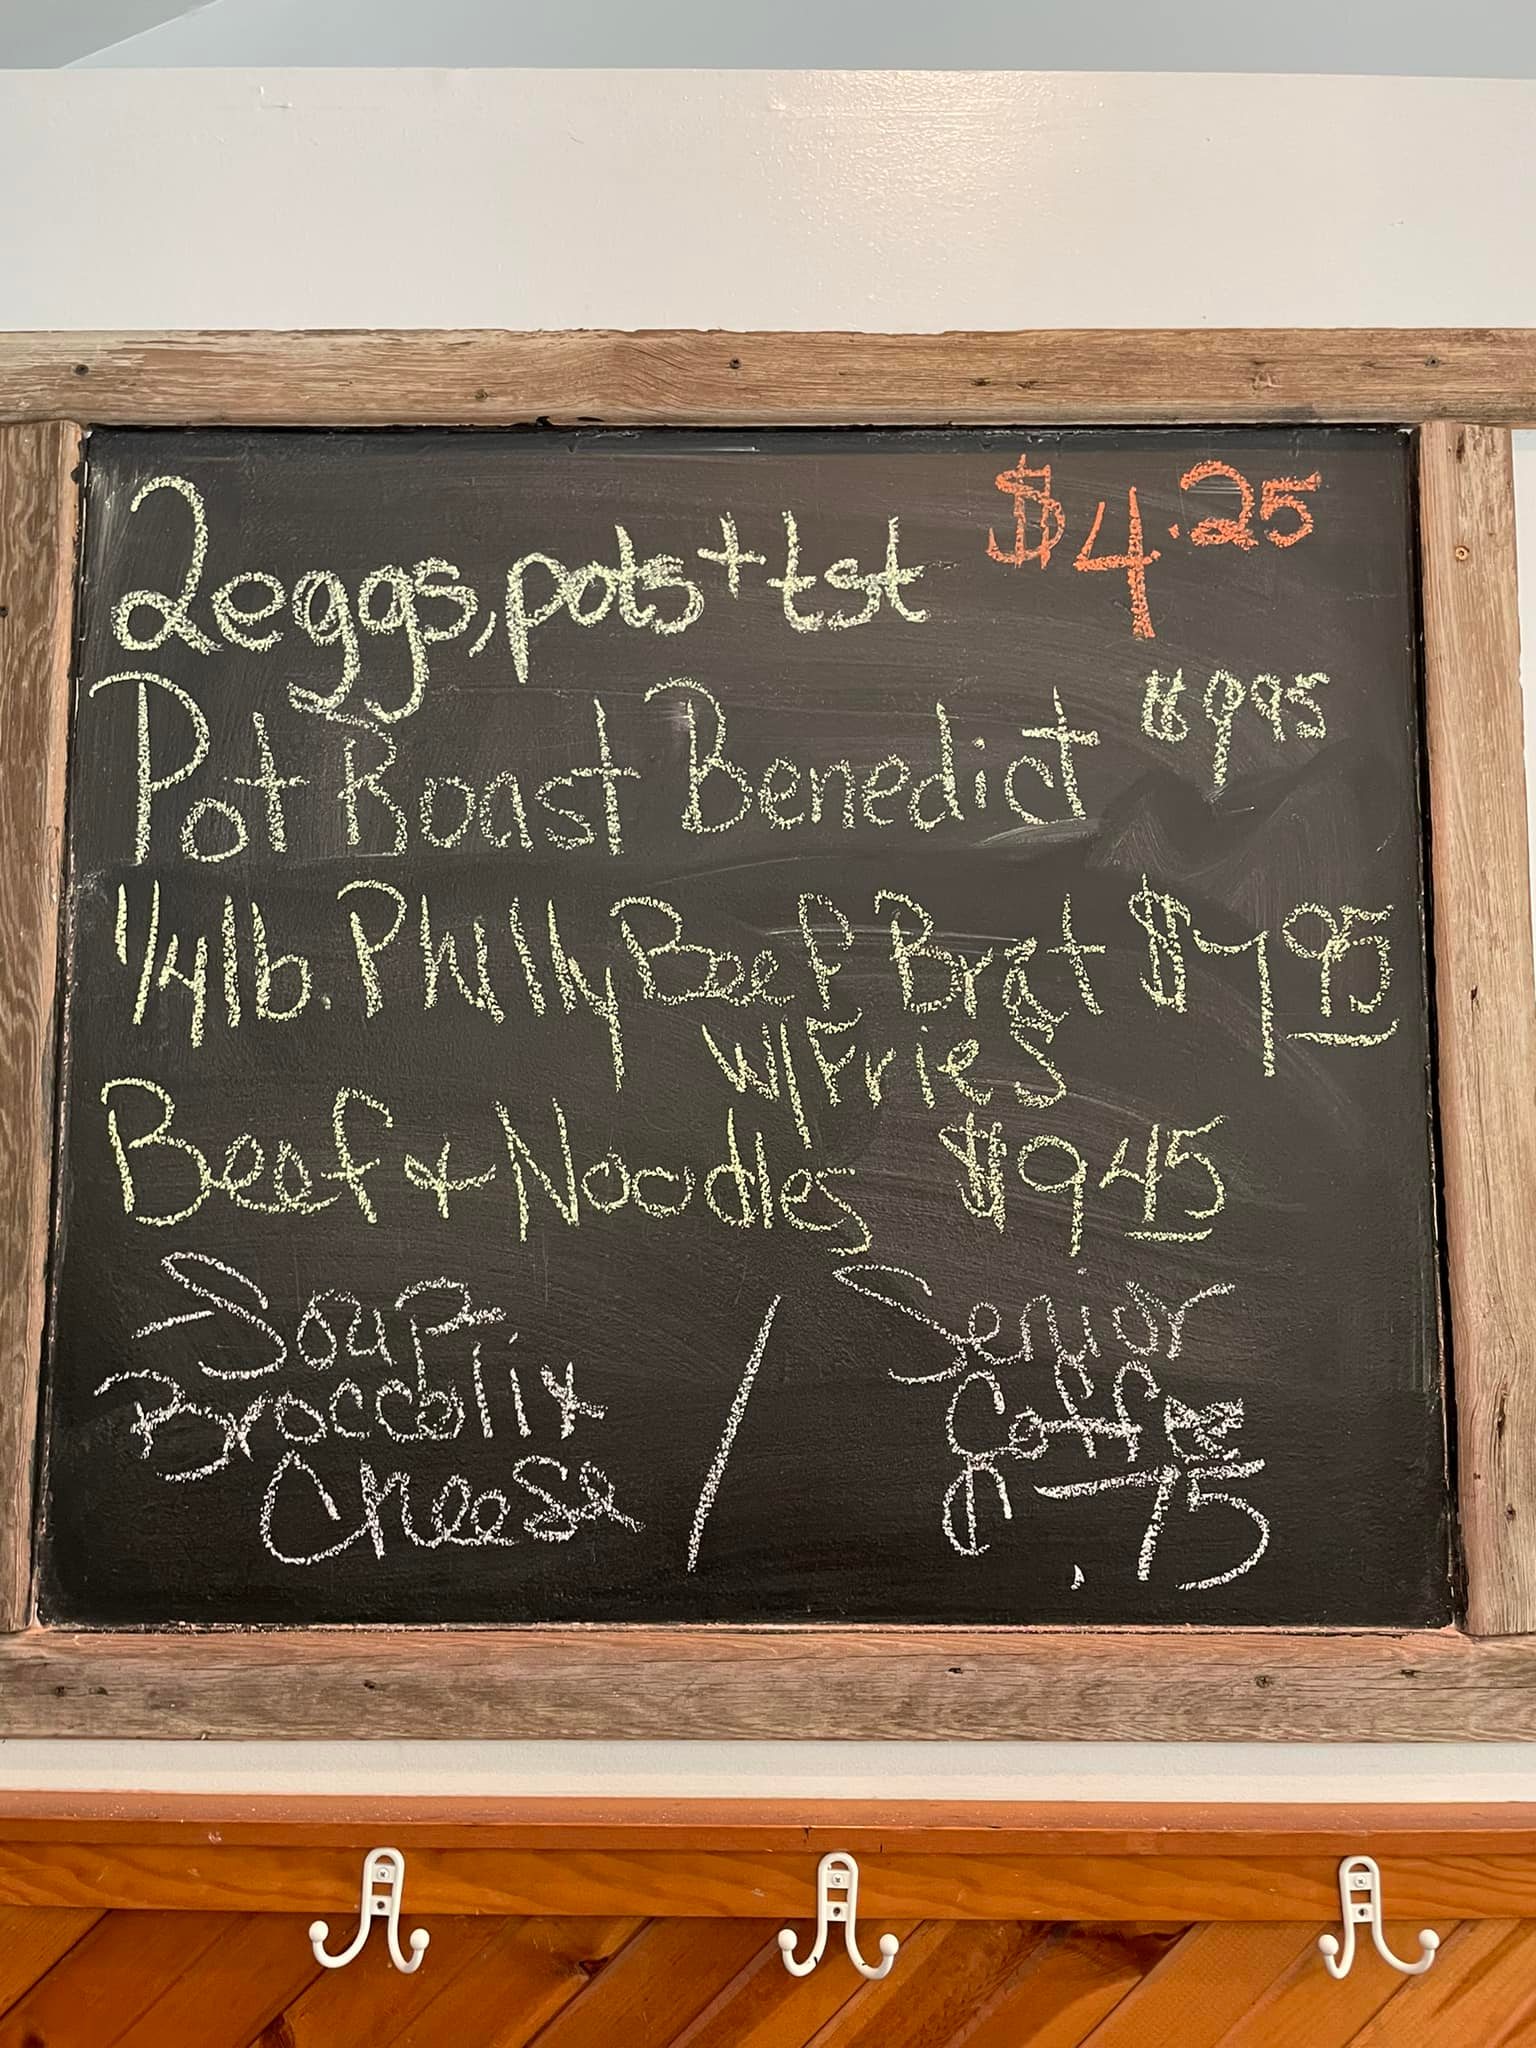 2eggs, pots + tst $4.25
Pot Roast Benedict $9.95
1/4lb. Philly Beef Brat $7.95
W/Fries
Beef + Noodles $9.45
Soup / Senior
Broccoli + Coffee
Cheese $ .75